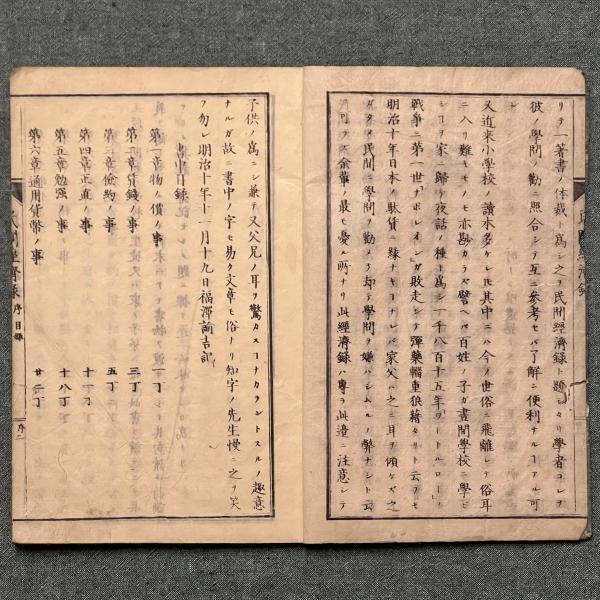 リテ一著書ノ体裁ヲ爲シ之ヲ民間經濟録ト題シタリ學者コレヲ
彼ノ學問ノ勸ニ照合シテ互ニ參考セバ了解ニ便利ナルヿアル可
又近来小學校ノ讀本多ケレ𪜈其中ニハ今ノ世俗ニ飛離レテ俗耳
ニ入リ難キモノモ亦尠カラズ譬ヘバ百姓ノ子ガ晝間學校ニ學ビ
シヿヲ家ニ歸リ夜話ノ種ト爲シ一千八百十五年「ワートルロー」ノ
戰爭ニ第一世「ナポレオン」ガ敗走シテ彈藥輜重狼藉タリト云フモ
明治十年日本ノ駄賃ニ縁ナキヿナレバ家父ハ之ニ耳ヲ傾ケズ之
ガタメ民間ニ學問ヲ勸メテ却テ學問ヲ嫌ハシムルノ弊ナシト云
可ラズ余輩ノ最モ憂ル所ナリ此經濟録ハ專ラ此邉ニ注意シテ
子供ノ爲ニシ兼テ又父兄ノ耳ヲ驚カスヿナカラントスルノ趣意
ナルガ故ニ書中ノ字モ易ク文章モ俗ナリ知字ノ先生慢ニ之ヲ笑
フ勿レ明治十年十二月十九日福澤諭吉記
書中目録
第一章物ノ價ノ事 一丁
第二章貨錢ノ事 三丁
第三章儉約ノ事 五丁
第四章正直ノ事 十一丁
第五章勉強ノ事 十八丁
第六章通用貨幣ノ事 廿二丁
民間經濟録 序目録 序二